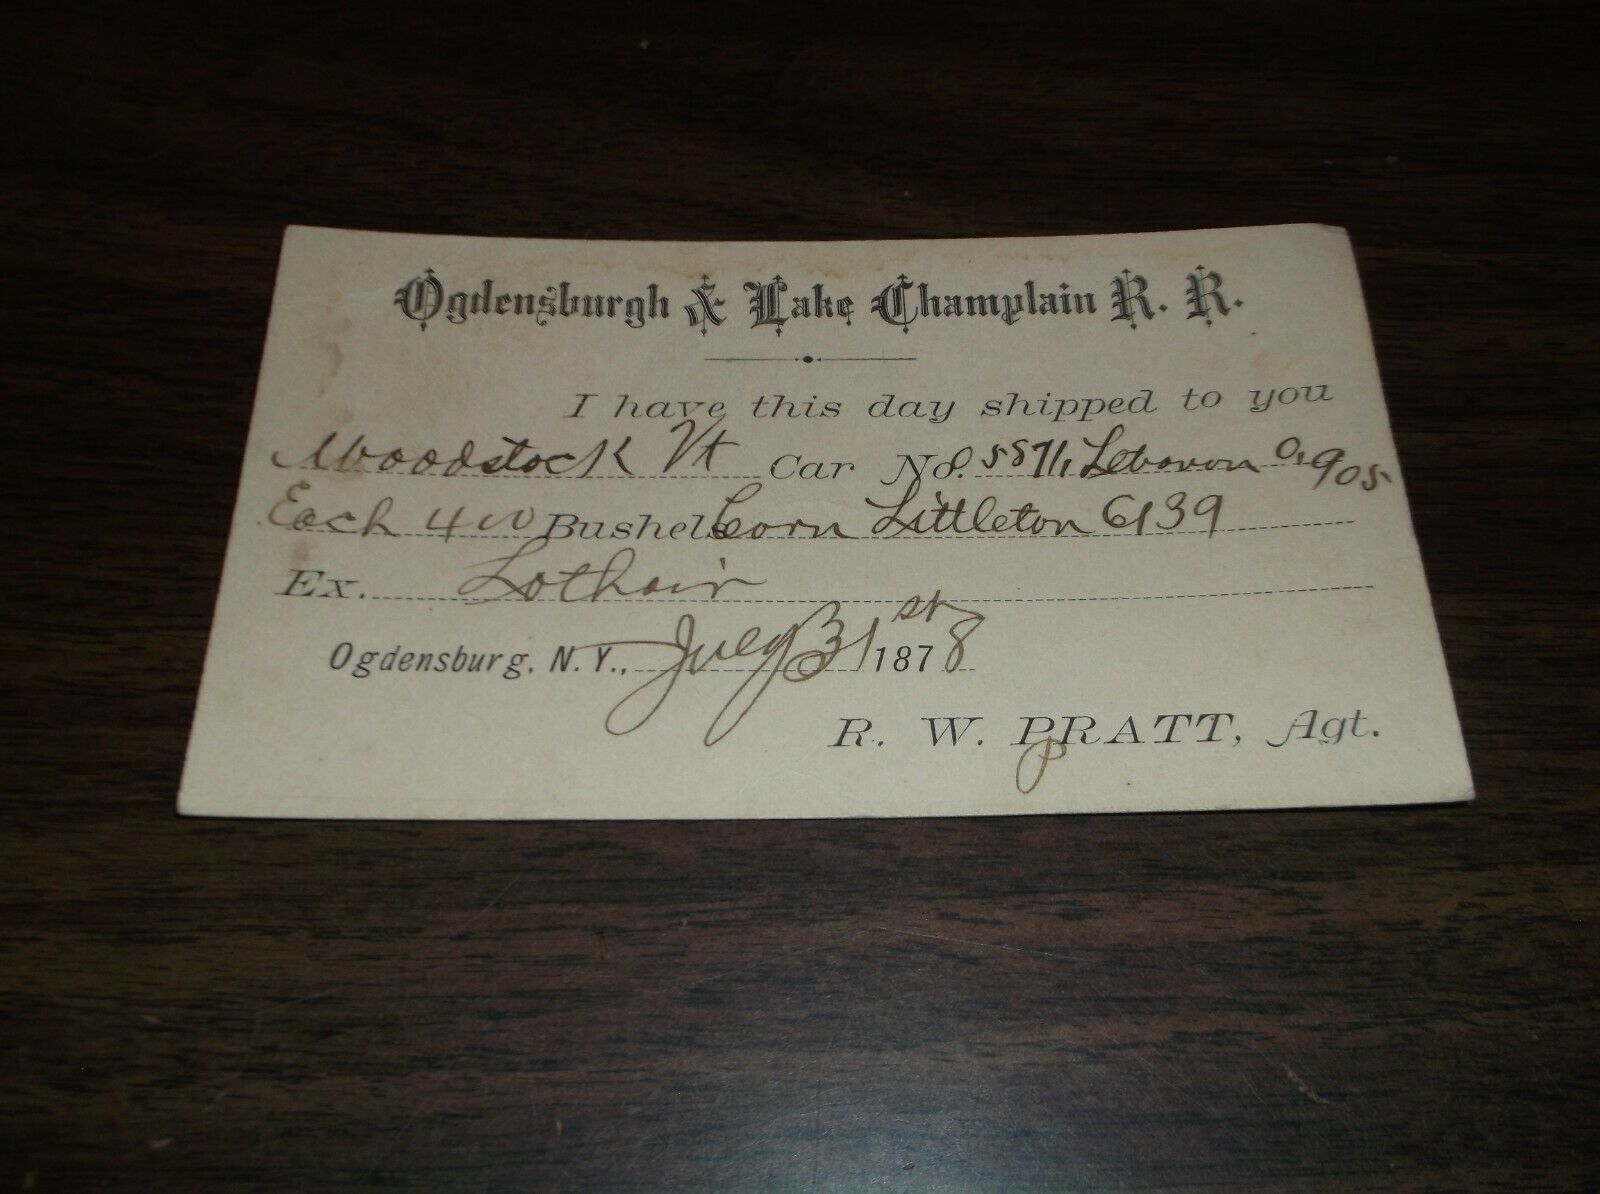 Ogdensburgh & Lake Champlain R. R.
I have this day shipped to you
Woodstock Vt Car No. 5571, Lebanon 0,905
Each 400 Bushels Corn Littleton 6139
Ex. Lothair
Ogdensburg, N. Y., July 31st 1878
R. W. PRATT, Agt.